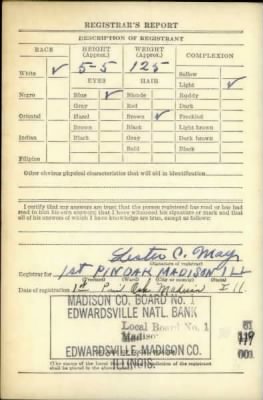 REGISTRAR'S REPORT
DESCRIPTION OF REGISTRANT
RACE HEIGHT (Approx.) WEIGHT (Approx.) COMPLEXION
White ✓ 5-5 125 Sallow
EYES HAIR Light ✓
Negro Blue ✓ Blonde Ruddy
Gray Red Dark
Oriental Hazel Brown ✓ Freckled
Brown Black Light brown
Indian Black Gray Dark brown
Bald Black
Filipino
Other obvious physical characteristics that will aid in identification
I certify that my answers are true; that the person registered has read or has had
read to him his own answers; that I have witnessed his signature or mark and that
all of his answers of which I have knowledge are true, except as follows:
Lester C. May
(Signature of registrar)
Registrar for 1st PIN OAK MADISON ILL
(Precinct) (Ward) (City or county) (State)
Date of registration 1st Pin Oak Madison Ill
MADISON CO. BOARD No. 1
EDWARDSVILLE NATL. BANK
Local Board No. 1 61
Madison 119
EDWARDSVILLE, MADISON CO. 001
ILLINOIS.